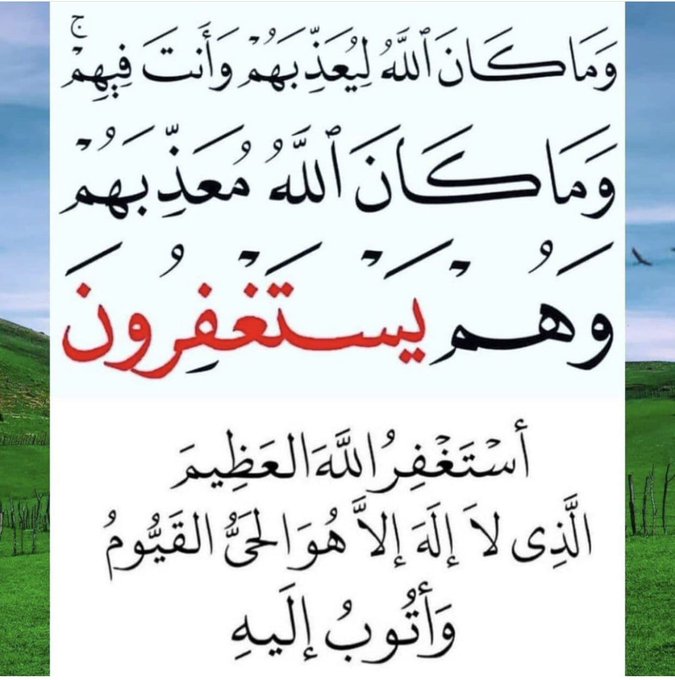 وَمَا كَانَ ٱللَّهُ لِيُعَذِّبَهُمْ وَأَنتَ فِيهِمْۚ
وَمَا كَانَ ٱللَّهُ مُعَذِّبَهُمْ
وَهُمْ يَسْتَغْفِرُونَ
أسْتَغْفِرُ اللَّهَ العَظِيمَ
الَّذِى لاَ إلَهَ إلاَّ هُوَ الحَيُّ القَيُّومُ
وَأتُوبُ إلَيهِ